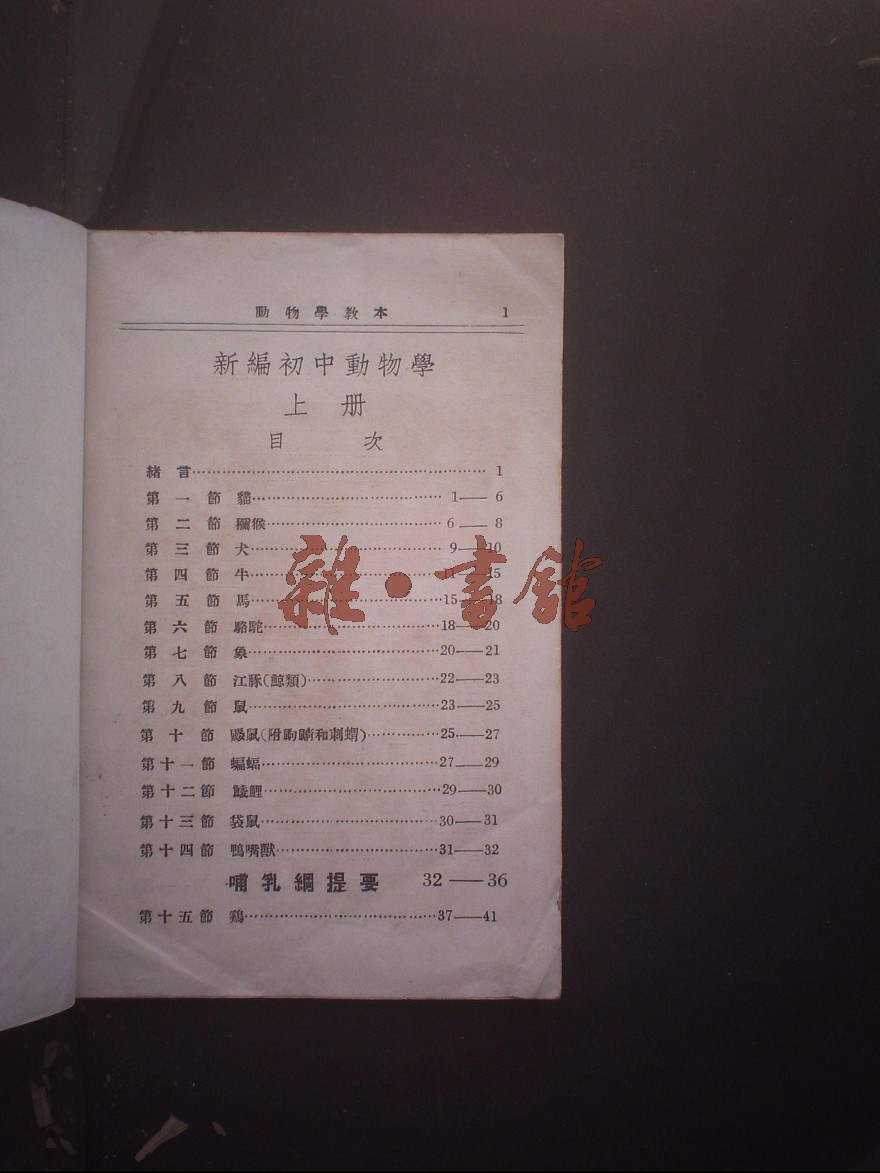 動物學教本 1
新編初中動物學
上册
目次
緒言…………………………………………… 1
第一節 貓……………………………1——6
第二節 獼猴…………………………6——8
第三節 犬……………………………9——10
第四節 牛……………………………11——15
第五節 馬……………………………15——18
第六節 駱駝…………………………18——20
第七節 象……………………………20——21
第八節 江豚(鯨類)…………………22——23
第九節 鼠……………………………23——25
第十節 鼴鼠(附鼩鼱和刺蝟)…………25——27
第十一節 蝙蝠…………………………27——29
第十二節 鯪鯉…………………………29——30
第十三節 袋鼠…………………………30——31
第十四節 鴨嘴獸………………………31——32
哺乳綱提要 32——36
第十五節 鷄……………………………37——41
雜·書館